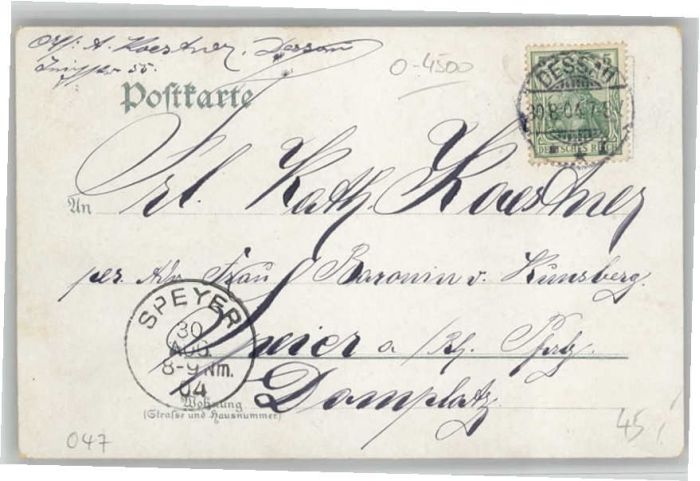 Abs. A. Kaestner, Dessau
55.
Postkarte
0-4500
5
DEUTSCHES REICH
DESSAU
30.8.04. 7-8 V
An Frl. Kath. Kaestner
per. Adr. Frau Baronin v. Künsberg.
Speier a/Rh. Pfalz.
Domplatz.
SPEYER
30
AUG.
8-9 Nm.
04
Wohnung
(Straße und Hausnummer)
047
45,